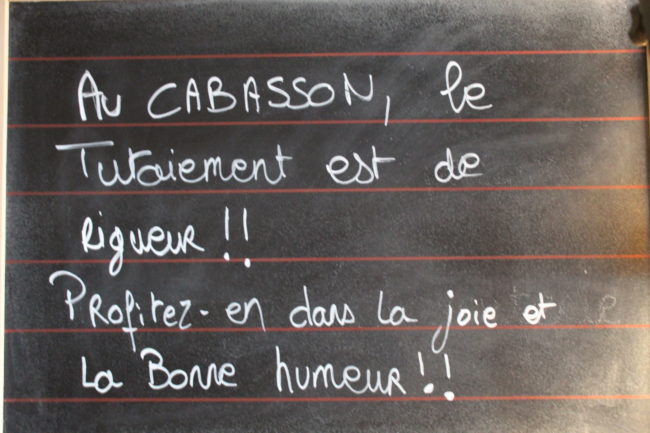 Au CABASSON, le
Tutoiement est de
Rigueur !!
Profitez-en dans la joie et
la Bonne humeur !!